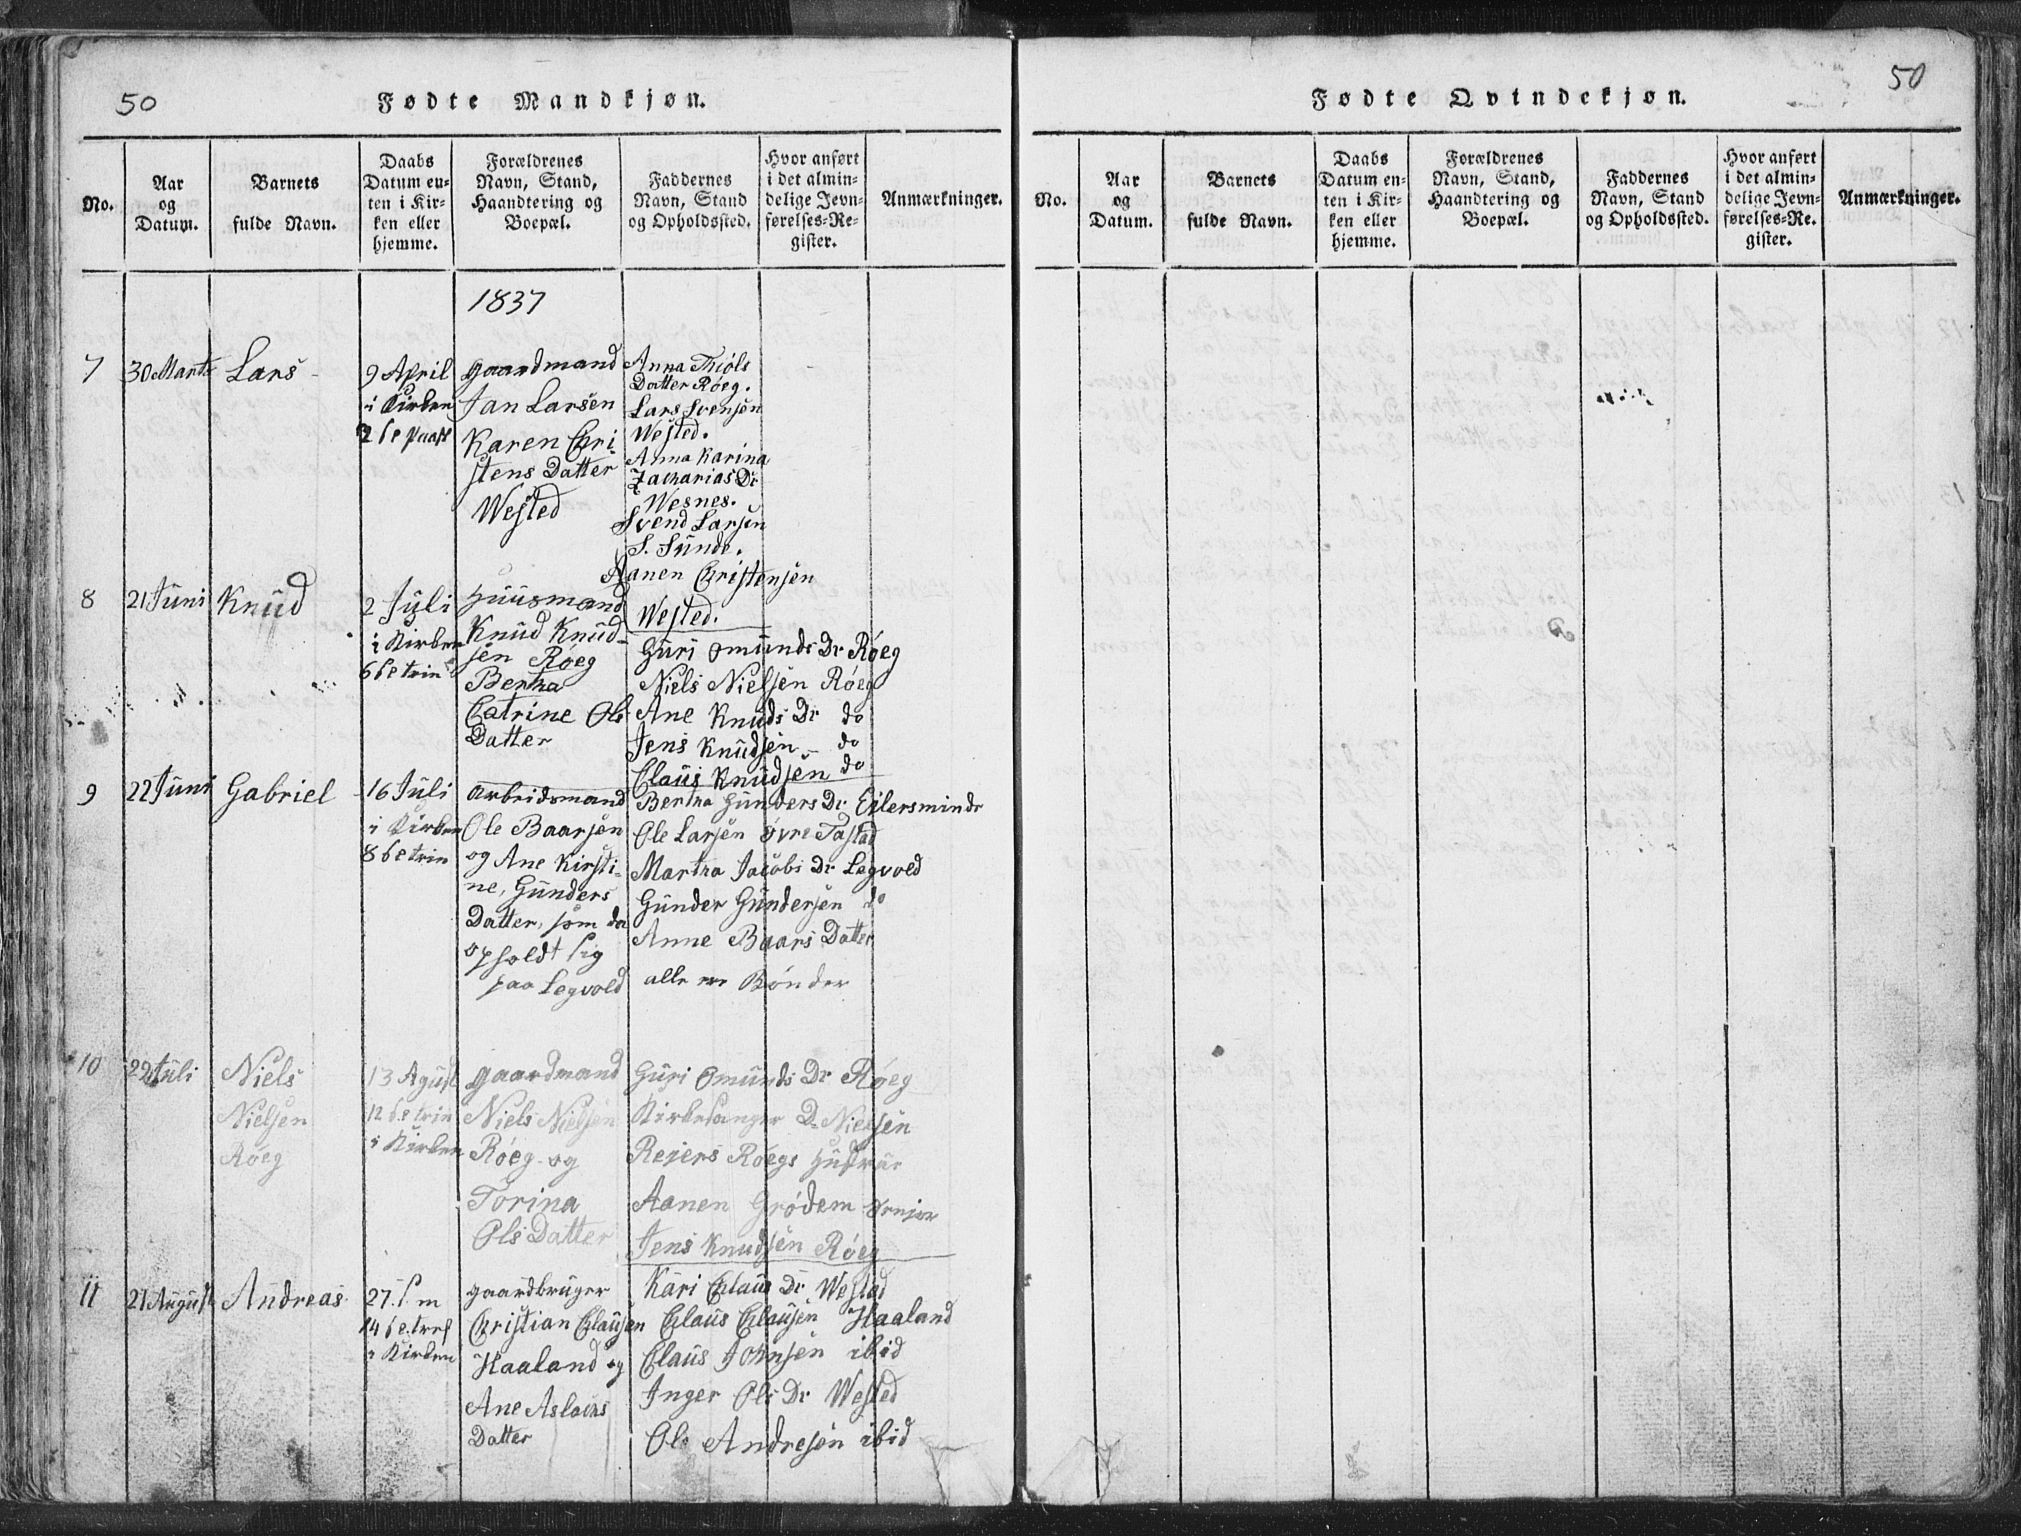 50
Fødte Mandkjøn.
No.
Aar
og
Datum.
Barnets
fulde Navn.
Daabs
Datum en-
ten i Kir-
ken eller
hjemme.
Forældrenes
Navn, Stand,
Haandtering og
Boepæl.
Faddernes
Navn, Stand
og Opholdssted.
Hvor anført
i det almin-
delige Jevn-
førelses-Re-
gister.
Anmærkninger.
1837
7
30 Marts
Lars
9 April
i Kirken
2 be paask
gaardmand
Jan Larsen
Karen Chri
stens Datter
Wested
Anna Thiøls
Datter Røeg.
Lars Svensen
Wested.
Anna Karina
Zacharias Dr
Wesnes.
Svend Larsen
S. Sunde.
Aanen Christensen
Wested.
8
21 Juni
Knud
2 Juli
i Kirken
6 be trin
Huusmand
Knud Knud-
sen Røeg
Bertha
Catrine Ols
Datter
Guri Omunds Dr Røeg
Niels Nielsen Røeg
Ane Knuds Dr do
Jens Knudsen do
Claus Knudsen do
9
22 Juni
Gabriel
16 Juli
i Kirken
8 be trin
Arbeidsmand
Ole Baarsen
og Ane Kirsti-
ne, Gunders
Datter, som da
opholdt sig
paa Legvold
Bertha Gunders Dr Eilersminde
Ole Larsen Øvre Tastad
Martha Jacobs Dr Legvold
Gunder Gundersen do
Anne Baars Datter
alle ere Bønder
10
22 Juli
Niels
Nielsen
Røeg
13 Agust
12 be trin
i Kirken
gaardmand
Niels Nielsen
Røeg og
Torina
Ols Datter
Guri Omunds Dr Røeg
Kirkesanger D. Nielsen
Rejers Røegs
Aanen Grødem
Jens Knudsen Røeg
11
21 August
Andreas
27. s. m
14 be. tref
i Kirken
gaardbruger
Christian Clausen
Haaland og
Ane Aslachs
Datter
Kari Claus Dr Westad
Claus Clausen Haaland
Claus Johnsen ibid
Inger Ols Dr Wested
Ole Andresen ibid
50
Fødte Qvindekjøn.
No.
Aar
og
Datum.
Barnets
fulde Navn.
Daabs
Datum en-
ten i Kir-
ken eller
hjemme.
Forældrenes
Navn, Stand,
Haandtering og
Boepæl.
Faddernes
Navn, Stand
og Opholdssted.
Hvor anført
i det almin-
delige Jevn-
førelses-Re-
gister.
Anmærkninger.